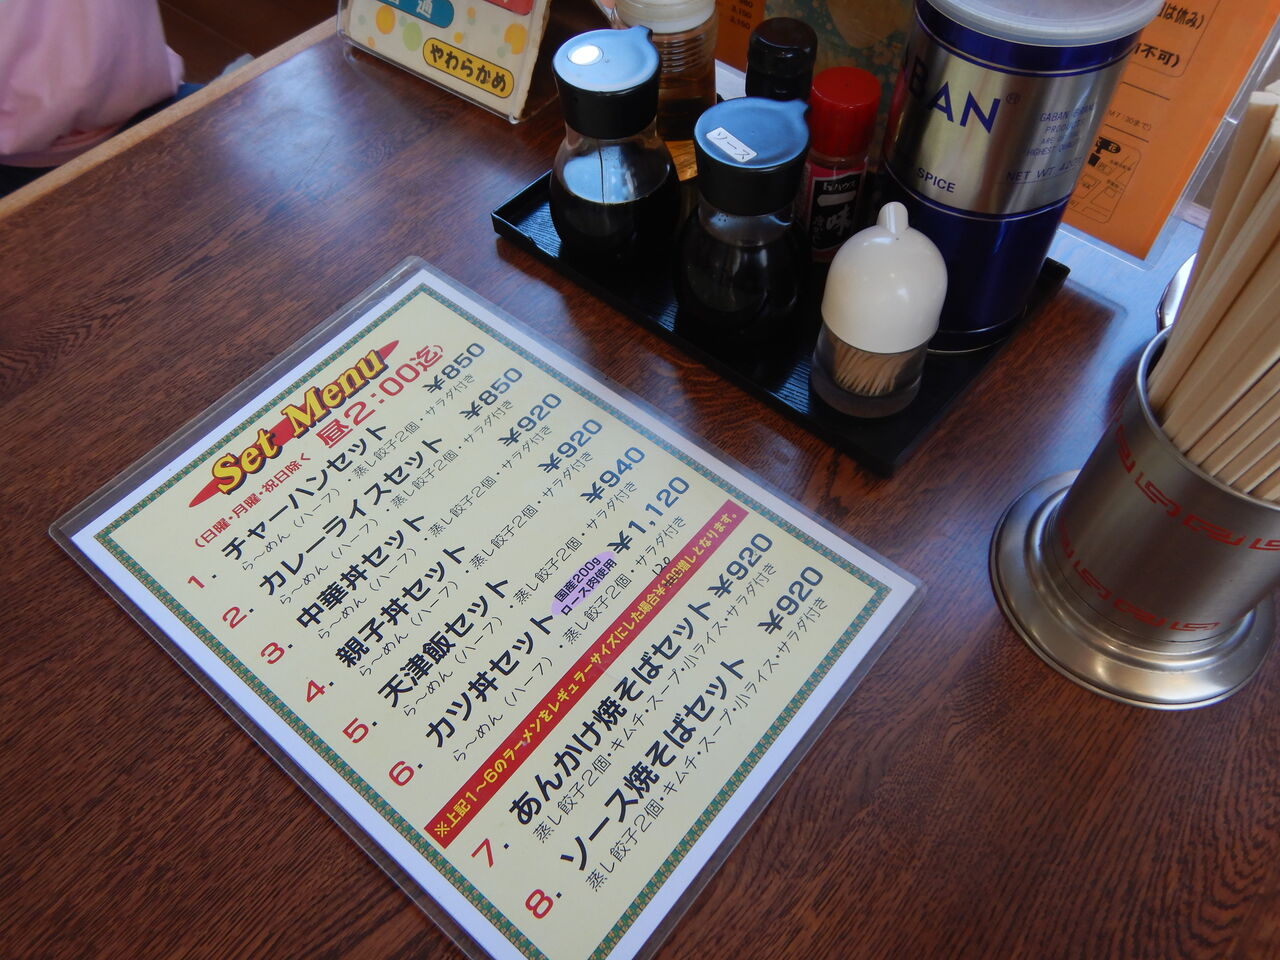 通
やわらかめ
ソース
ハウス
一味
BAN®
GABAN BRAND
HIGHEST QUALITY
SPICE
NET WT 420
は休み)
不可)
Set Menu
(日曜・月曜・祝日除く 昼2:00迄)
1. チャーハンセット ¥850
ら〜めん(ハーフ)・蒸し餃子2個・サラダ付き
2. カレーライスセット ¥850
ら〜めん(ハーフ)・蒸し餃子2個・サラダ付き
3. 中華丼セット ¥920
ら〜めん(ハーフ)・蒸し餃子2個・サラダ付き
4. 親子丼セット ¥920
ら〜めん(ハーフ)・蒸し餃子2個・サラダ付き
5. 天津飯セット ¥940
ら〜めん(ハーフ)・蒸し餃子2個・サラダ付き
国産200g
ロース肉使用
6. カツ丼セット ¥1,120
ら〜めん(ハーフ)・蒸し餃子2個・サラダ付き
120
※上記1〜6のラーメンをレギュラーサイズにした場合¥100増しとなります。
7. あんかけ焼そばセット ¥920
蒸し餃子2個・キムチ・スープ・小ライス・サラダ付き
8. ソース焼そばセット ¥920
蒸し餃子2個・キムチ・スープ・小ライス・サラダ付き